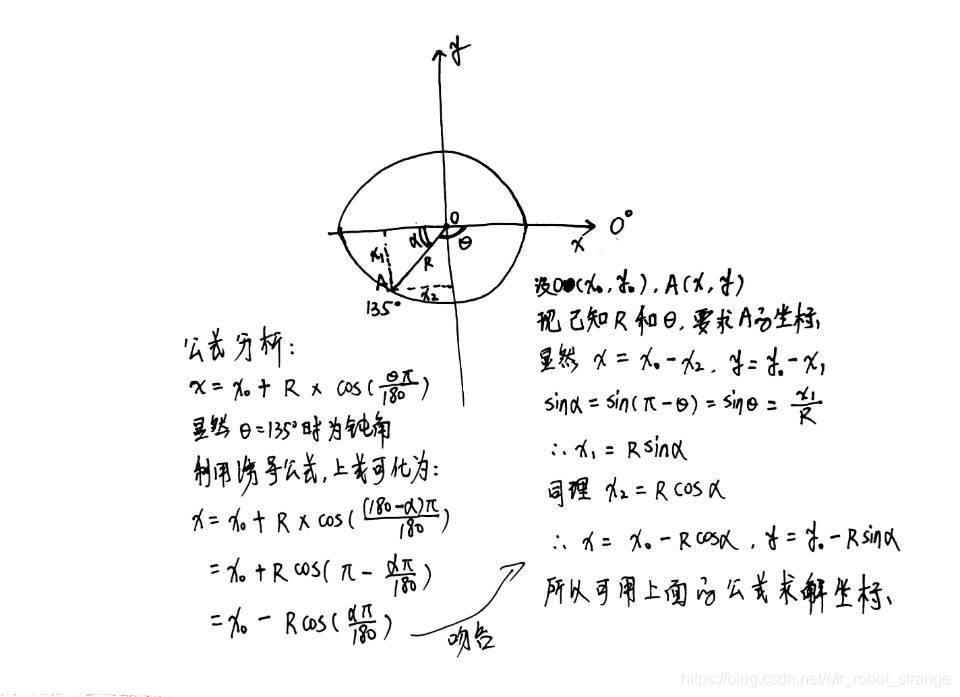 y
O
x
0°
α
θ
x₁
R
A
x₂
135°
设O(x₀,y₀),A(x,y)
现已知R和θ,要求A的坐标、
显然 x = x₀ - x₂, y = y₀ - x₁
sinα = sin(π - θ) = sinθ = x₁/R
∴ x₁ = Rsinα
同理 x₂ = Rcosα
∴ x = x₀ - Rcosα, y = y₀ - Rsinα
所以可用上面的公式求解坐标、
公式分析:
x = x₀ + R × cos(θπ/180)
显然 θ=135°时为钝角
利用诱导公式,上式可化为:
x = x₀ + R × cos((180-α)π/180)
= x₀ + R cos(π - απ/180)
= x₀ - R cos(απ/180)
吻合
https://blog.csdn.net/Mr_robot_strange